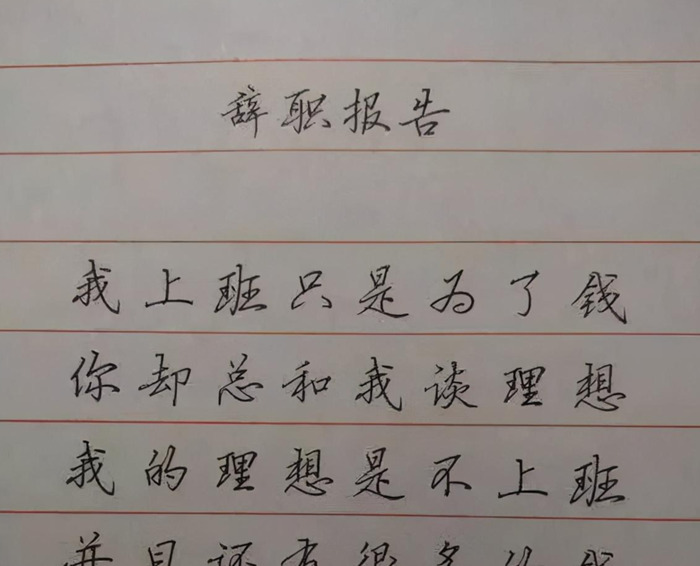 辞职报告
我上班只是为了钱
你却总和我谈理想
我的理想是不上班
并且还有很多